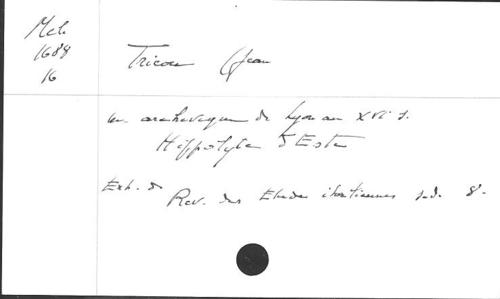 Mel.
1688
16
Tricou Jean
Un archevêque de Lyon au XVIe s.
Hippolyte d'Este
Extr. de
Rev. des Etudes italiennes s.d. 8°